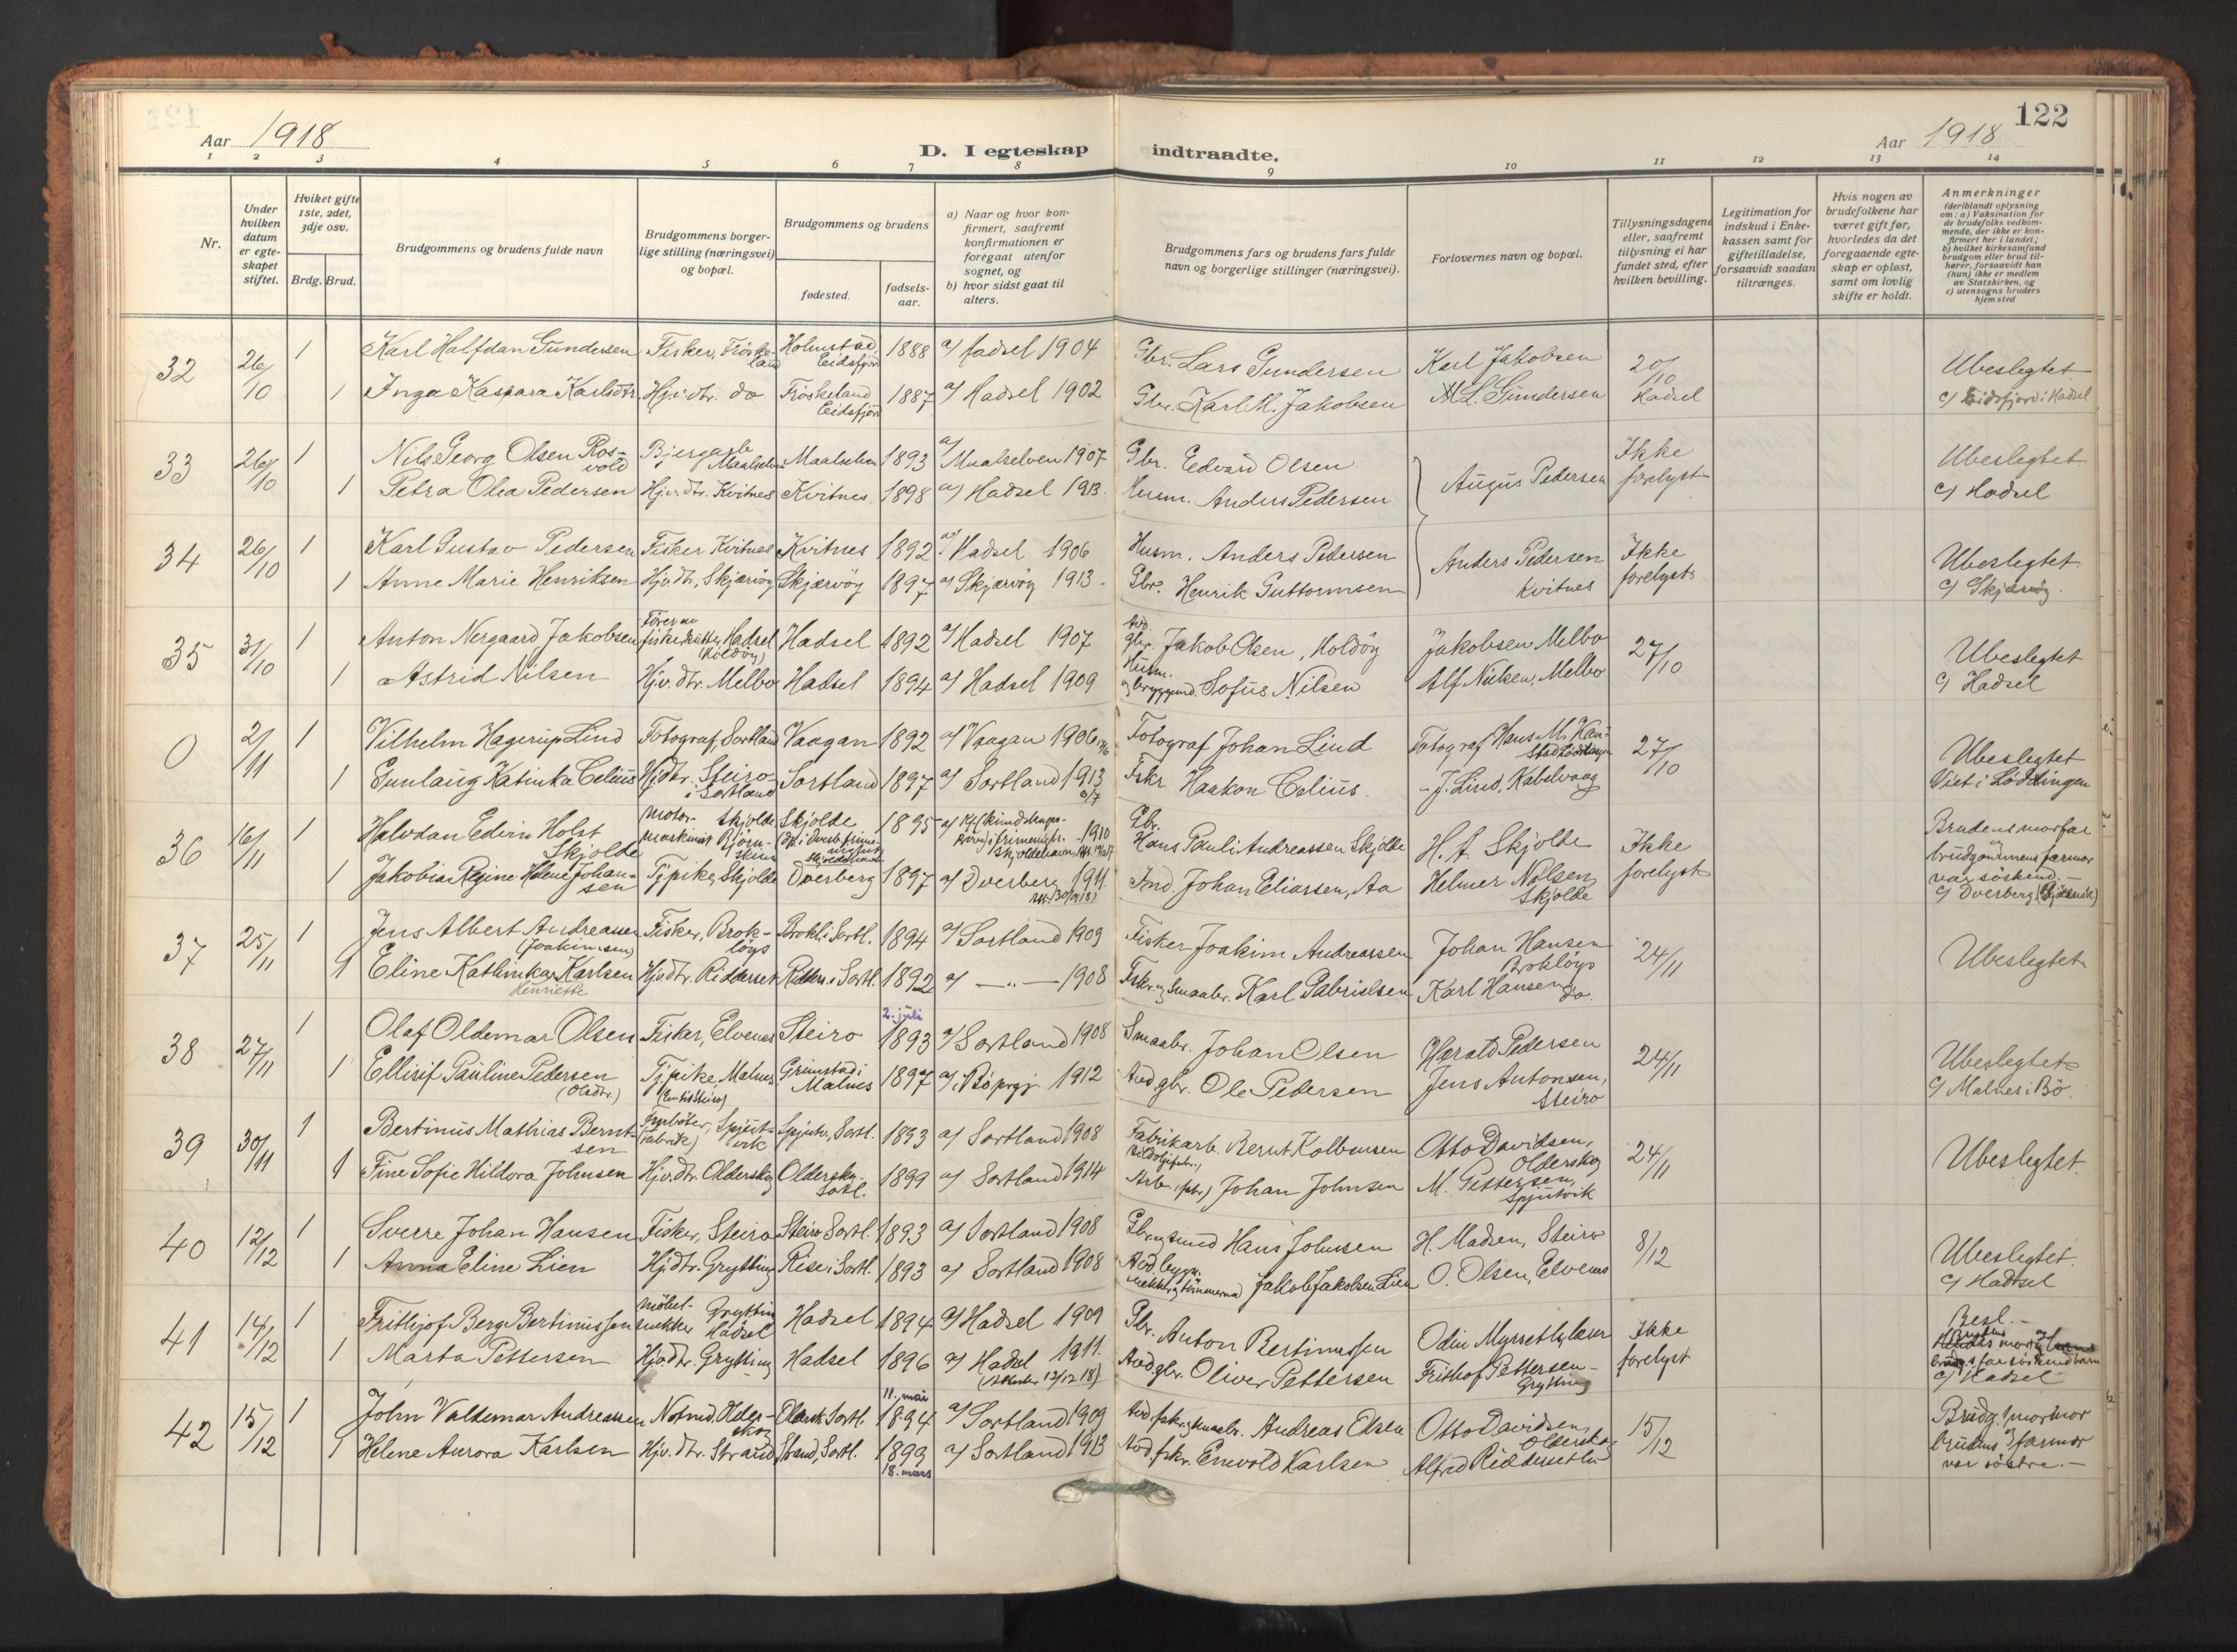 122
Aar 1918
D. I egteskap indtraadte.
Aar 1918
1 2 3 4 5 6 7 8 9 10 11 12 13 14
Nr.
Under hvilken datum er egteskapet stiftet.
Hviket gifte 1ste, 2det, 3dje osv.
Brdg. Brud.
Brudgommens og brudens fulde navn
Brudgommens borgerlige stilling (næringsvei) og bopæl.
Brudgommens og brudens
fødested.
fødselsaar.
a) Naar og hvor konfirmert, saafremt konfirmationen er foregaat utenfor sognet, og
b) hvor sidst gaat til alters.
Brudgommens fars og brudens fars fulde navn og borgerlige stillinger (næringsvei).
Forlovernes navn og bopæl.
Tillysningsdagene eller, saafremt tillysning ei har fundet sted, efter hvilken bevilling.
Legitimation for indskud i Enkekassen samt for giftetilladelse, forsaavidt saadan tiltrænges.
Hvis nogen av brudefolkene har været gift før, hvorledes da det foregaaende egteskap er opløst, samt om lovlig skifte er holdt.
Anmerkninger (deriblandt oplysning om: a) Vaksination for de brudefolks vedkommende, der ikke er konfirmert her i landet; b) hvilket kirkesamfund brudgom eller brud tilhører, forsaavidt han (hun) ikke er medlem av Statskirken, og c) utensogns bruders hjemsted
32 26/10 1 Karl Halfdan Gundersen Fisker, Frøskeland Holmstad Eidsfjord 1888 a/ Hadsel 1904 Gbr. Lars Gundersen Karl Jakobsen 20/10 Hadsel Ubeslegtet
1 Inga Kaspara Karlsdtr. Hjv.dtr. do Frøskeland Eidsfjord 1887 a/ Hadsel 1902 Gbr. Karl M. Jakobsen M. L. Gundersen c/ Eidsfjord i Hadsel
33 26/10 1 Nils Georg Olsen Rosvold Bjergarb. Maalselven Maalselven 1893 a/ Maalselven 1907 Gbr. Edvard Olsen Augus Pedersen Ikke forelyst Ubeslegtet
1 Petra Olea Pedersen Hjv.dtr. Kvitnes Kvitnes 1898 a/ Hadsel 1913. Husm. Anders Pedersen c/ Hadsel
34 26/10 1 Karl Gustav Pedersen Fisker Kvitnes Kvitnes 1892 a/ Hadsel 1906 Husm. Anders Pedersen Anders Pedersen Kvitnes Ikke forelyst Ubeslegtet.
1 Anne Marie Henriksen Hjv.dtr, Skjærvøy Skjærvøy 1897 a/ Skjærvøy 1913. Gbr. Henrik Guttormsen c/ Skjærvøy.
35 31/10 1 Anton Nergaard Jakobsen Fører av fiskeskøite, Hadsel (Holdøy) Hadsel 1892 a/ Hadsel 1907 Avd. gbr. Jakob Olsen, Holdøy Jakobsen Melbo 27/10 Ubeslegtet
1 Astrid Nilsen Hjv. dtr. Melbo Hadsel 1894 a/ Hadsel 1909 Husm. og bryggemd. Sofus Nilsen Alf Nielsen, Melbo c/ Hadsel
0 2/11 1 Vilhelm Hagerup Lind Fotograf, Sortland Vaagan 1892 a/ Vaagan 1906 Fotograf Johan Lind Fotograf Hans M. Kanstad Lødingen 27/10 Ubeslegtet
1 Gunlaug Katinka Celius Hjdtr. Steiro i Sortland Sortland 1897 a/ Sortland 1913 Fskr Haakon Celius. - J. Lind, Kabelvaag Viet i Lødingen
36 16/11 1 Halvdan Edvin Holst Skjolde Motormaskinist Skjolde Bjørnskinn Skjolde 1895 a/ 1910 Gbr. Hans Pauli Andreassen Skjolde H. A. Skjolde Ikke forelyst Brudens morfar brudgommens farmor var søskend. -
1 Jakobia Regine Helene Johansen Tj.pike, Skjolde Dverberg 1897 a/ Dverberg 1911. Ind. Johan Eliassen, Aa Helmer Nilsen Skjolde c/ Dverberg
37 25/11 1 Jens Albert Andreassen (Joakimsen) Fisker, Brokløys Brokl. i Sortl. 1894 a/ Sortland 1909 Fisker Joakim Andreassen Johan Hansen Brokløys 24/11 Ubeslegtet
1 Eline Kathinka Karlsen Henriette Hjv.dtr. Ridderset Ridders. i Sortl. 1892 a/ — " — 1908 Fskr. og Smaabr. Karl Gabrielsen Karl Hansen do.
38 27/11 1 Olaf Oldemar Olsen Fisker, Elvenes Steiro 2. juli 1893 a/ Sortland 1908 Smaabr. Johan Olsen Harald Pedersen 24/11 Ubeslegtet
1 Ellisif Pauline Pedersen (Olsdtr.) Tj.pike, Malnes Grimstad i Malnes 1897 a/ Bø prgj 1912 Avd gbr. Ole Pedersen Jens Antonsen, Steiro c/ Malnes i Bø.
39 30/11 1 Bertinus Mathias Berntsen Fyrbøter, Spjutvik (fabrik) Spjutv., Sortl. 1893 a/ Sortland 1908 Fabrikarb. Bernt Kolbensen Otto Davidsen, Olderskog 24/11 Ubeslegtet.
1 Fine Sofie Hildora Johnsen Hjv.dtr. Olderskog Oldersko. Sortl. 1899 a/ Sortland 1914 Arb. Johan Johnsen M. Pettersen, Spjutvik
40 12/12 1 Sverre Johan Hansen Fisker, Steiro Steiro Sortl. 1893 a/ Sortland 1908 Hans Johnsen H. Madsen, Steiro 8/12 Ubeslegtet.
1 Anna Eline Lien Hjdtr. Grytting Rise i Sortl. 1893 a/ Sortland 1908 Jakob Jakobsen Lien O. Olsen, Elvenes c/ Hadsel
41 14/12 1 Frithjof Berg Bertinussen Møbelsnekker Grytting Hadsel Hadsel 1894 a/ Hadsel 1909 Gbr. Anton Bertinussen Odin Myrseth, lærer Ikke forelyst Besl. -
1 Marta Pettersen Hjv.dtr. Grytting Hadsel 1896 a/ Hadsel 1911. Avd gbr. Oliver Pettersen Frithjof Pettersen - Grytting c/ Hadsel
42 15/12 1 John Valdemar Andreassen Notmd. Olderskog Oldersk. Sortl. 11. mai 1894 a/ Sortland 1909 Avd. fskr. og smaabr. Andreas Olsen Otto Davidsen, Olderskog 15/12 Brudg. mormor og brudens farmor var søstre. -
1 Helene Aurora Karlsen Hjv. dtr. Strand Strand, Sortl. 1899 18. mars a/ Sortland 1913 Avd. fskr. Enevold Karlsen Alfred Ridderseth